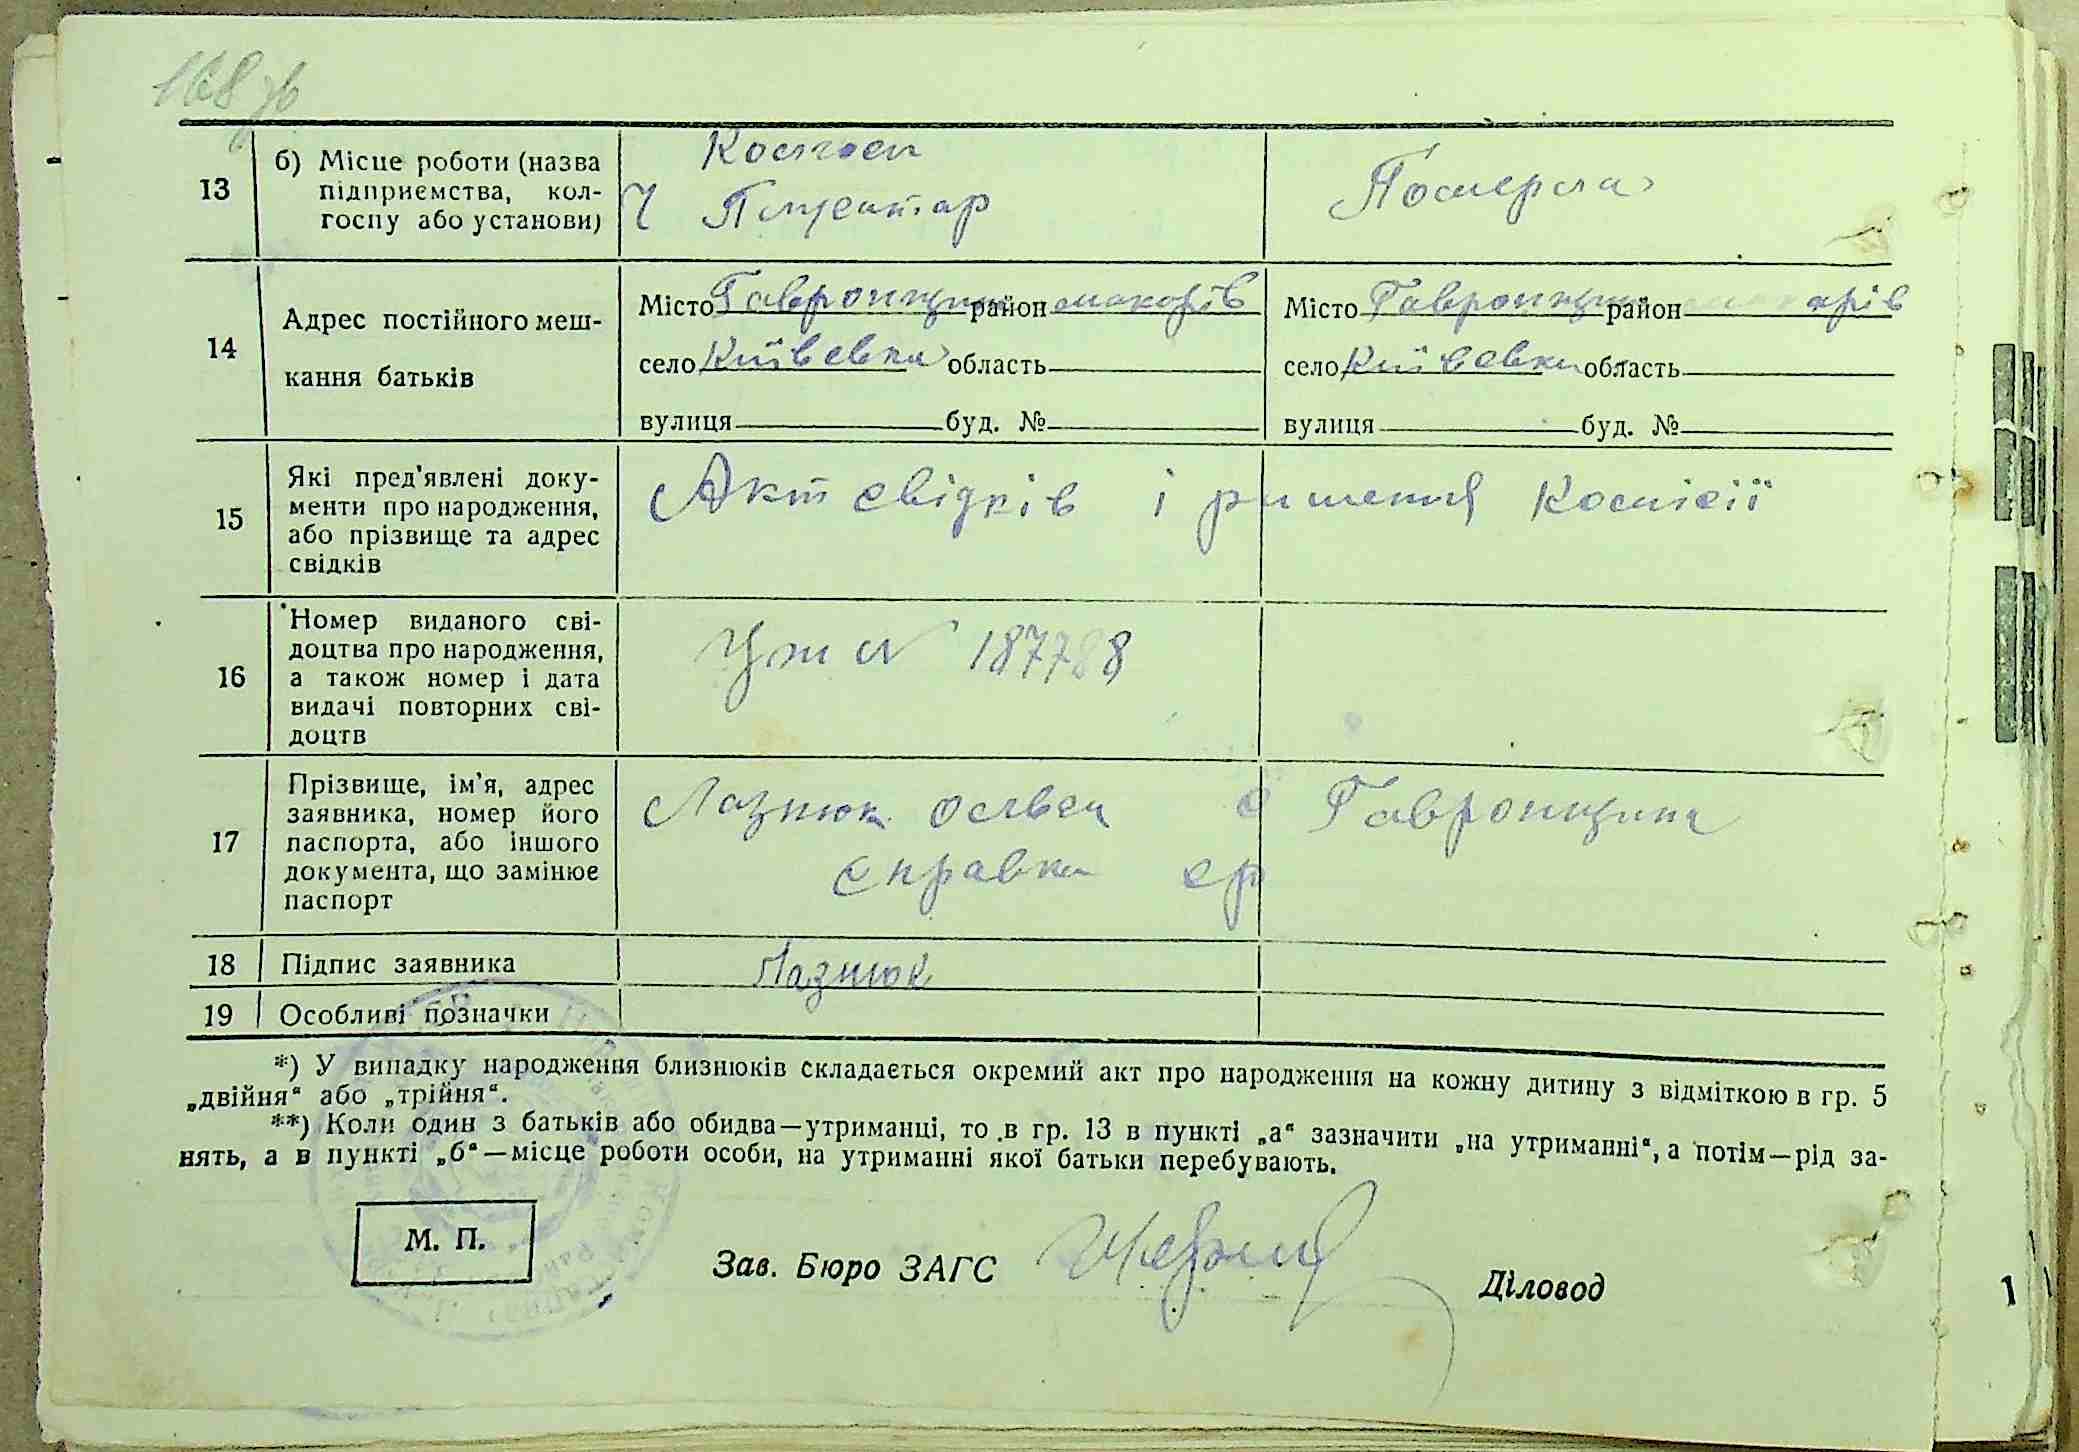 168 зв
13
б) Місце роботи (назва
підприємства, кол-
госпу або установи)
Колгосп
Померла
14
Адрес постійного меш-
кання батьків
Місто Гавронщина район макарів
село Київська область
вулиця буд. №
Місто Гавронщина район макарів
село Київська область
вулиця буд. №
15
Які пред'явлені доку-
менти про народження,
або прізвище та адрес
свідків
Акт свідків і ришення Комісії
16
Номер виданого сві-
доцтва про народження,
а також номер і дата
видачі повторних сві-
доцтв
№ 187788
17
Прізвище, ім'я, адрес
заявника, номер його
паспорта, або іншого
документа, що замінює
паспорт
Лазнюк с Гавронщина
справка ср
18
Підпис заявника
Лазнюк
19
Особливі позначки
*) У випадку народження близнюків складається окремий акт про народження на кожну дитину з відміткою в гр. 5
„двійня“ або „трійня“.
**) Коли один з батьків або обидва—утриманці, то в гр. 13 в пункті „а“ зазначити „на утриманні“, а потім—рід за-
нять, а в пункті „б“—місце роботи особи, на утриманні якої батьки перебувають.
М. П.
Зав. Бюро ЗАГС
Діловод